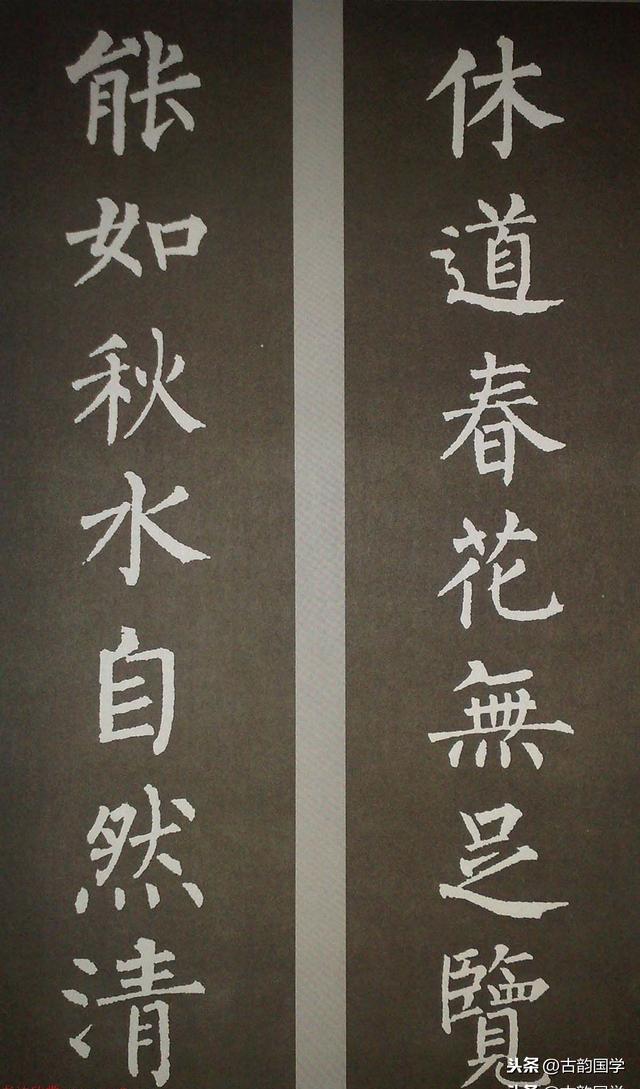 休道春花無足覽
能如秋水自然清
头条 @古韵国学